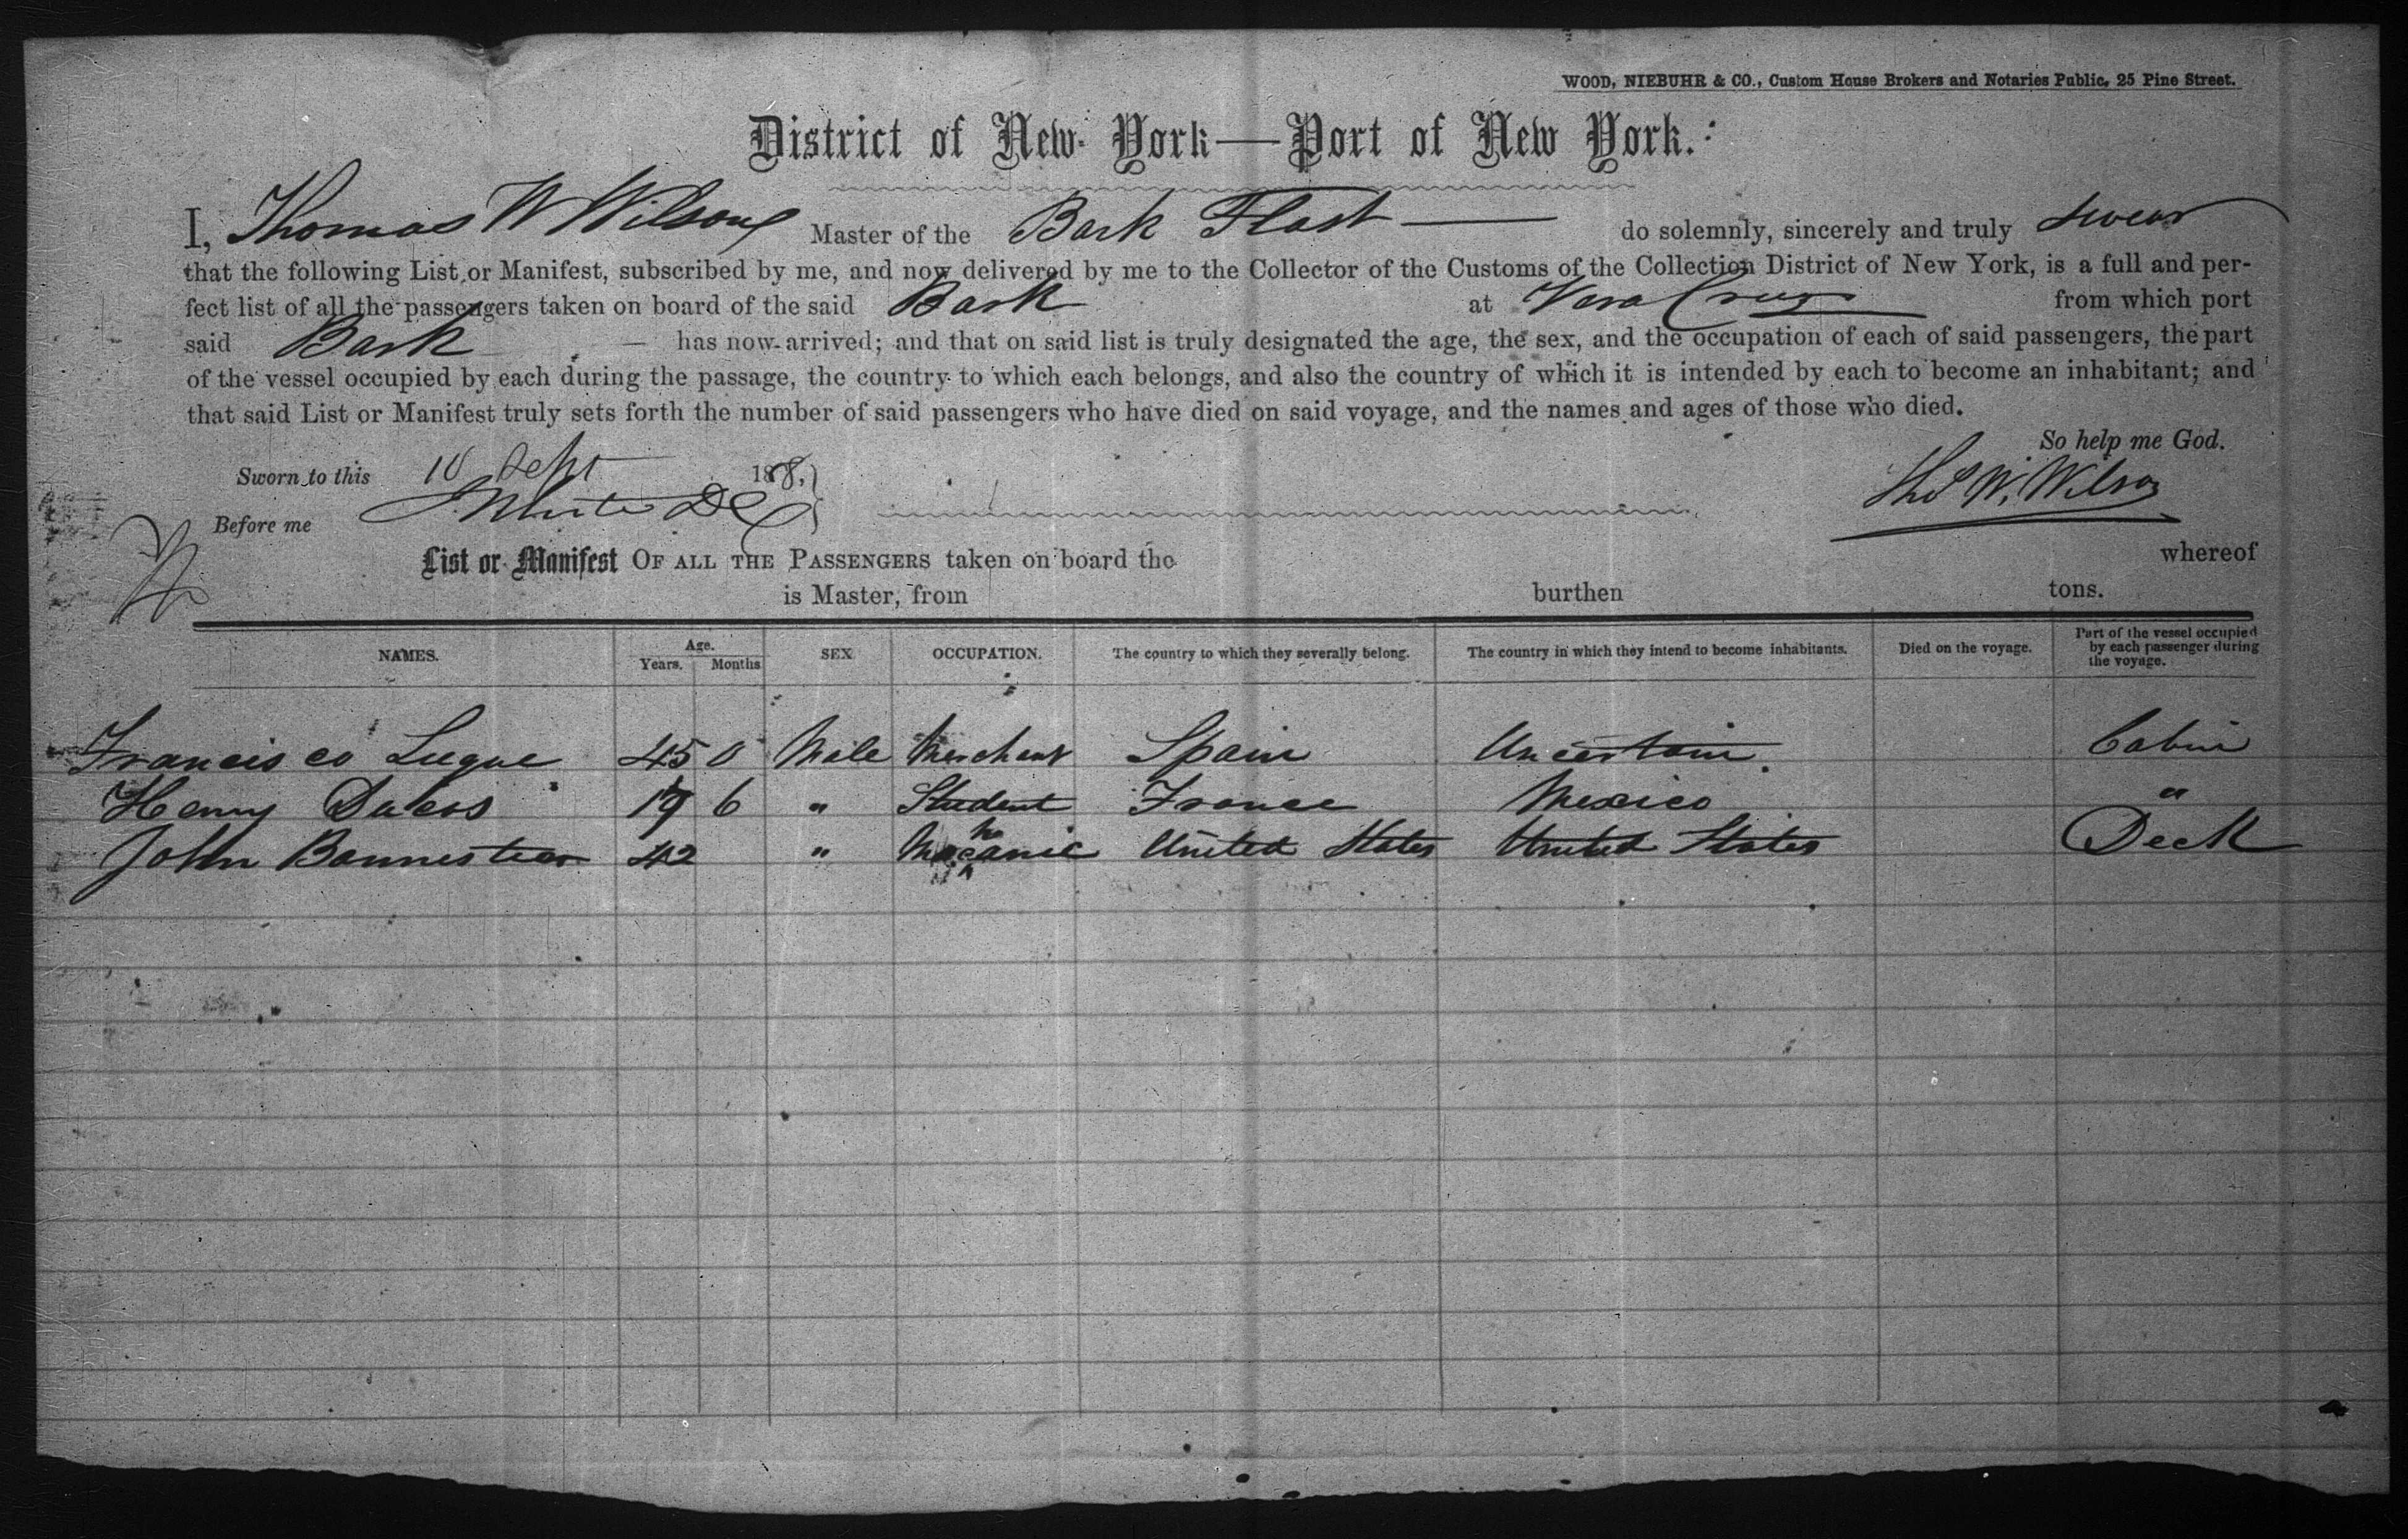 WOOD, NIEBUHR & CO., Custom House Brokers and Notaries Public, 25 Pine Street.
District of New York—Port of New York.
I, Thomas W Wilson Master of the Bark Flash do solemnly, sincerely and truly swear
that the following List or Manifest, subscribed by me, and now delivered by me to the Collector of the Customs of the Collection District of New York, is a full and per-
fect list of all the passengers taken on board of the said Bark at Vera Cruz from which port
said Bark — has now arrived; and that on said list is truly designated the age, the sex, and the occupation of each of said passengers, the part
of the vessel occupied by each during the passage, the country to which each belongs, and also the country of which it is intended by each to become an inhabitant; and
that said List or Manifest truly sets forth the number of said passengers who have died on said voyage, and the names and ages of those who died.
So help me God.
Sworn to this 18 Sept 188 Thos W. Wilson
Before me J. White DC
List or Manifest OF ALL THE PASSENGERS taken on board the whereof
is Master, from burthen tons.
NAMES. Age. Years. Months SEX OCCUPATION. The country to which they severally belong. The country in which they intend to become inhabitants. Died on the voyage. Part of the vessel occupied by each passenger during the voyage.
Francisco Luque 45 0 Male Merchant Spain Uncertain. Cabin
Henry 19 6 " Student France Mexico "
John Bannester 42 " Mechanic United States United States Deck